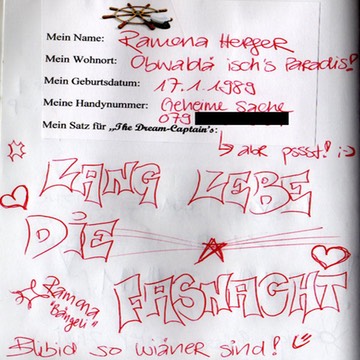 Mein Name: Ramona Herger
Mein Wohnort: Obwaldä isch's Paradis!
Mein Geburtsdatum: 17.1.1989
Meine Handynummer: Geheime Sache
079
Mein Satz für „The Dream-Captain's:
↳ aber pssst! ;-)
LANG LEBE
DIE
FASNACHT
Ramona
"Bängeli"
Blibid so wiäner sind!